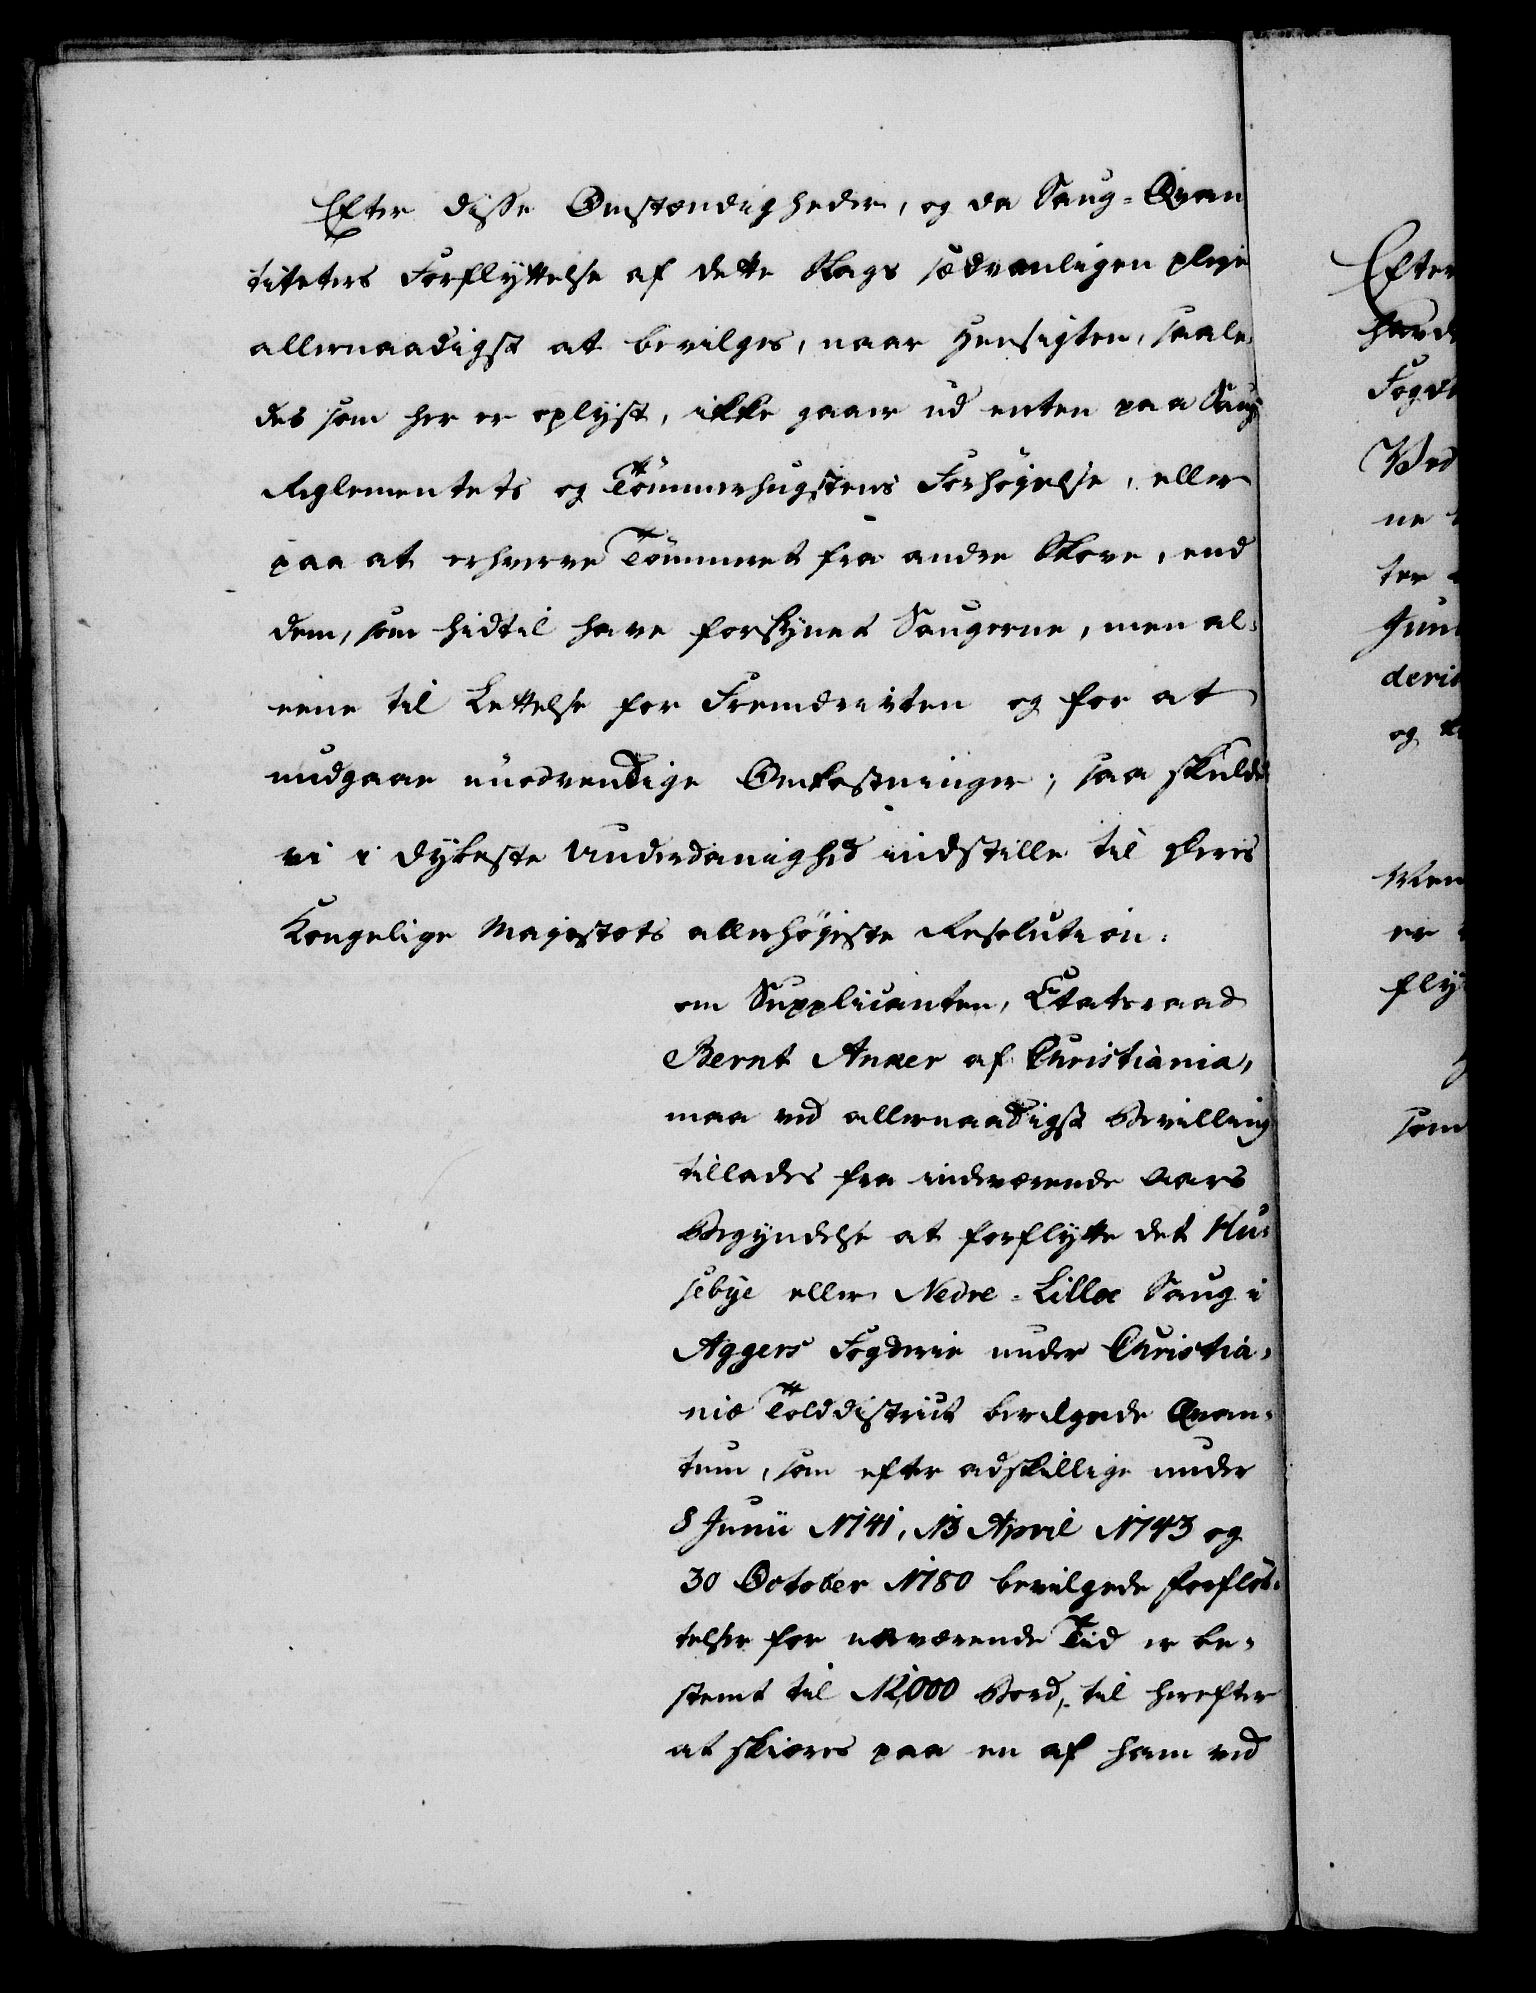 Efter disse Omstændigheder, og da Saug-Qvan
titeters Forflyttelse af dette Slags sædvanligen pleje
allernaadigst at bevilges, naar Hensigten, saale-
des som her er oplyst, ikke gaaer ud enten paa Saug
Reglementets og Tømmerhugstens Forhøyelse, eller
paa at erhverve Tømmeret fra andre Skove, end
dem, som hidtil have forsynet Saugerne, men al-
eene til Lettelse for Fremdrivten og for at
undgaae unødvendige Omkostninger; saa skulde
vi i dybeste Underdanighed indstille til Deres
Kongelige Majestæts allerhøjeste Resolution:
om Supplicanten, Etatsraad
Bernt Anker af Christiania,
maa ved allernaadigst Bevilling
tillades fra indeværende Aars
Begyndelse at forflytte det Hu-
sebye eller Nedre-Lilloe Saug i
Aggers Fogderie under Christia-
niæ Tolddistrict bevilgede Qvan-
tum, som efter adskillige under
8 Junii 1741, 13 April 1743 og
30 October 1780 bevilgede forflyt-
telser for nærværende Tid er be-
stemt til 12,000 Bord, til herefter
at skiæres paa en af ham ved
Efter
ne
ter
og
er
som